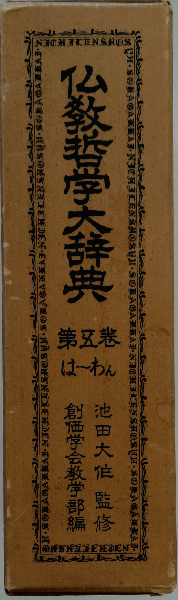 仏教哲学大辞典
第五巻
は〜わん
池田大作監修
創価学会教学部編